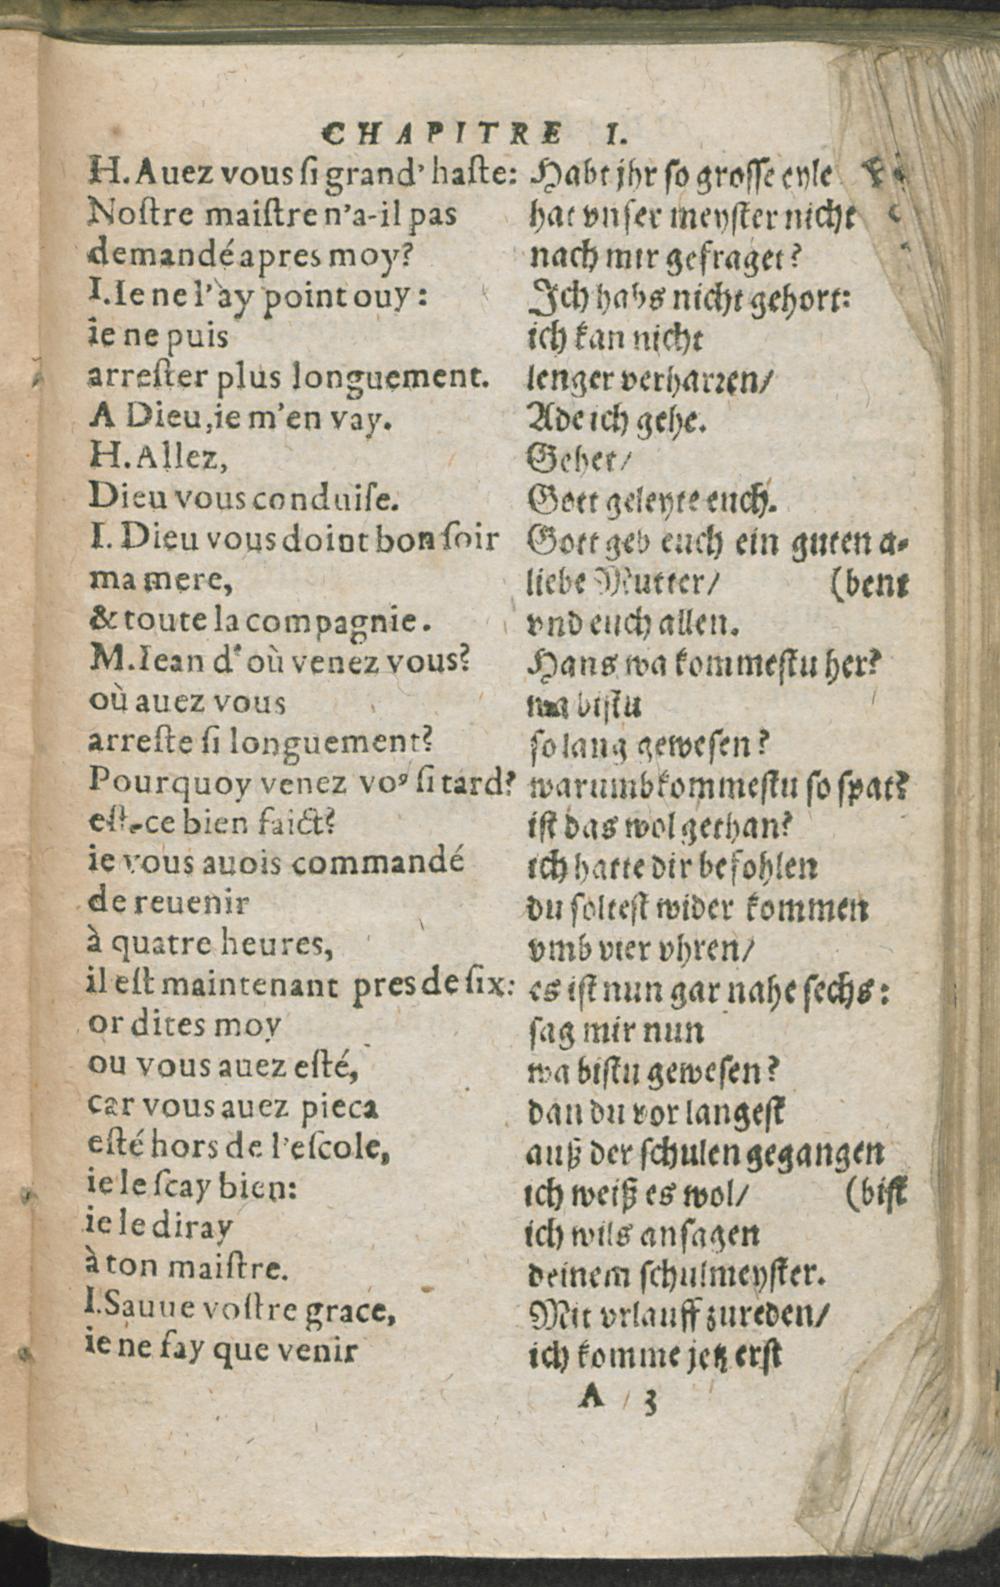 CHAPITRE I.
H. Auez vous ſi grand' haſte:
Noſtre maiſtre n'a-il pas
demandé apres moy?
I. Ie ne l'ay point ouy:
ie ne puis
arreſter plus longuement.
A Dieu, ie m'en vay.
H. Allez,
Dieu vous conduiſe.
I. Dieu vous doint bon ſoir
ma mere,
& toute la compagnie.
M. Iean d'où venez vous?
où auez vous
arreſte ſi longuement?
Pourquoy venez voꝰ ſi tard?
eſt-ce bien faict?
ie vous auois commandé
de reuenir
à quatre heures,
il eſt maintenant pres de ſix:
or dites moy
ou vous auez eſté,
car vous auez pieca
eſté hors de l'eſcole,
ie le ſcay bien:
ie le diray
à ton maiſtre.
I. Sauue voſtre grace,
ie ne fay que venir
Habt jhr ſo groſſe eyle
hat vnſer meyſter nicht
nach mir gefraget?
Ich habs nicht gehort:
ich kan nicht
lenger verharꝛen/
Ade ich gehe.
Gehet/
Gott geleyte euch.
Gott geb euch ein guten a-
liebe Mutter/ (bent
vnd euch allen.
Hans wa kommeſtu her?
wa biſtu
ſo lang geweſen?
warumb kommeſtu ſo ſpat?
iſt das wol gethan?
ich hatte dir befohlen
du ſolteſt wider kommen
vmb vier vhren/
es iſt nun gar nahe ſechs:
ſag mir nun
wa biſtu geweſen?
dan du vor langeſt
auß der ſchulen gegangen
ich weiß es wol/ (biſt
ich wils anſagen
deinem ſchulmeyſter.
Mit vrlauff zureden/
ich komme jetz erſt
A 3